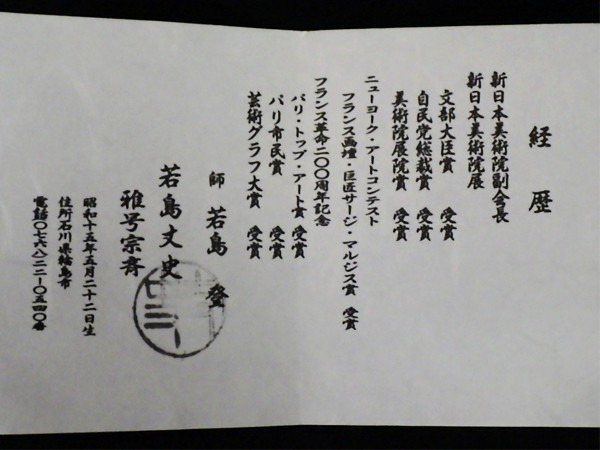 経歴
新日本美術院副会長
新日本美術院展
文部大臣賞 受賞
自民党総裁賞 受賞
美術院展院賞 受賞
ニューヨーク・アートコンテスト
フランス画壇・巨匠サージ・マルジス賞 受賞
フランス革命二〇〇周年記念
パリ・トップ・アート賞 受賞
パリ市民賞 受賞
芸術グラフ大賞 受賞
師 若島 登
若島丈史
雅号宗斉
昭和十五年五月二十二日生
住所石川県輪島市
電話〇七六八二二ー〇五四〇番